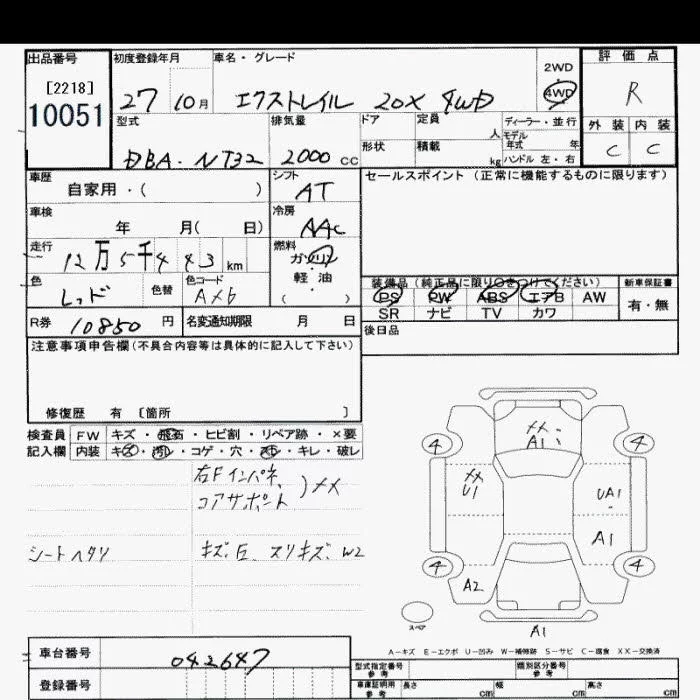 出品番号
[2218]
10051
初度登録年月
27 10月
車名・グレード
エクストレイル 20X 4WD
2WD
4WD
評価点
R
外装 内装
C C
型式
DBA-NT32
排気量
2000 CC
ドア
形状
定員
人
積載
kg
ディーラー・並行
モデル
年式 年
ハンドル 左・右
車歴
自家用・( )
シフト
AT
セールスポイント (正常に機能するものに限ります)
車検
年 月( 日)
冷房
AAC
走行
12万5千443 km
燃料
ガソリン
軽・油
( )
色
レッド
色替
色コード
AX6
装備品(純正品に限り○をつけてください)
PS PW ABS エアB AW
SR ナビ TV カワ
新車保証書
有・無
R券 10850 円
名変通知期限 月 日
後日品
注意事項申告欄(不具合内容等は具体的に記入して下さい)
修復歴 有 [箇所 ]
検査員
記入欄
FW キズ・飛石・ヒビ割・リペア跡・×要
内装 キズ・汚レ・コゲ・穴・スレ・キレ・破レ
右Fインパネ
コアサポート )XX
シートヘタリ
キズ、凹、スリキズ、W2
XX
A1
4
4
XX
U1
UA1
A1
4
4
A2
スペア
A1
A-キズ E-エクボ U-凹み W-補修跡 S-サビ C-腐食 XX-交換済
車台番号
042647
登録番号
型式指定番号
参考
類別区分番号
参考
車庫証明用
参考
長さ cm 幅 cm 高さ cm